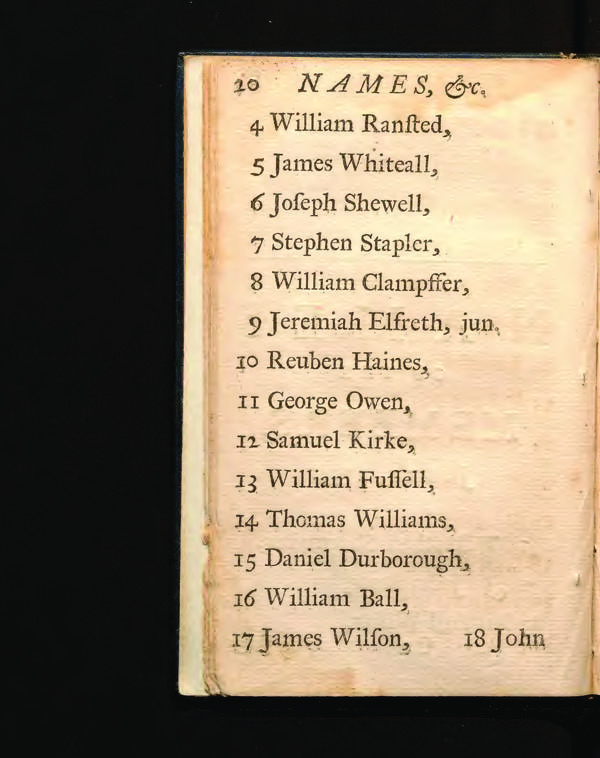 20 NAMES, &c.
4 William Ranſted,
5 James Whiteall,
6 Joſeph Shewell,
7 Stephen Stapler,
8 William Clampffer,
9 Jeremiah Elfreth, jun.
10 Reuben Haines,
11 George Owen,
12 Samuel Kirke,
13 William Fuſſell,
14 Thomas Williams,
15 Daniel Durborough,
16 William Ball,
17 James Wilſon, 18 John